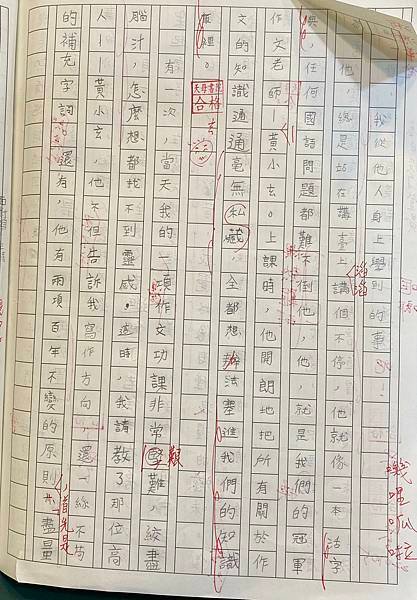 我從他人身上學到的事
他,總是站在講臺上講個不停,他就像一本活字
典,任何國語問題都難不倒他,他就是我們的冠軍
作文老師——黃小玄。上課時,他開朗地把所有關於作
文的知識通通毫無私藏,全都想辦法塞進我們的知識
有一次,當天我的一項作文功課非常艱難,絞盡
腦汁,怎麼想都找不到靈感,這時,我請教了那位高
人——黃小玄,他不但告訴我寫作方向,還一絲不苟
的補充字詞,還有,他有兩項百年不變的原則,盡量
天母書院
合格
滔滔
嘰哩呱啦
艱
首先是